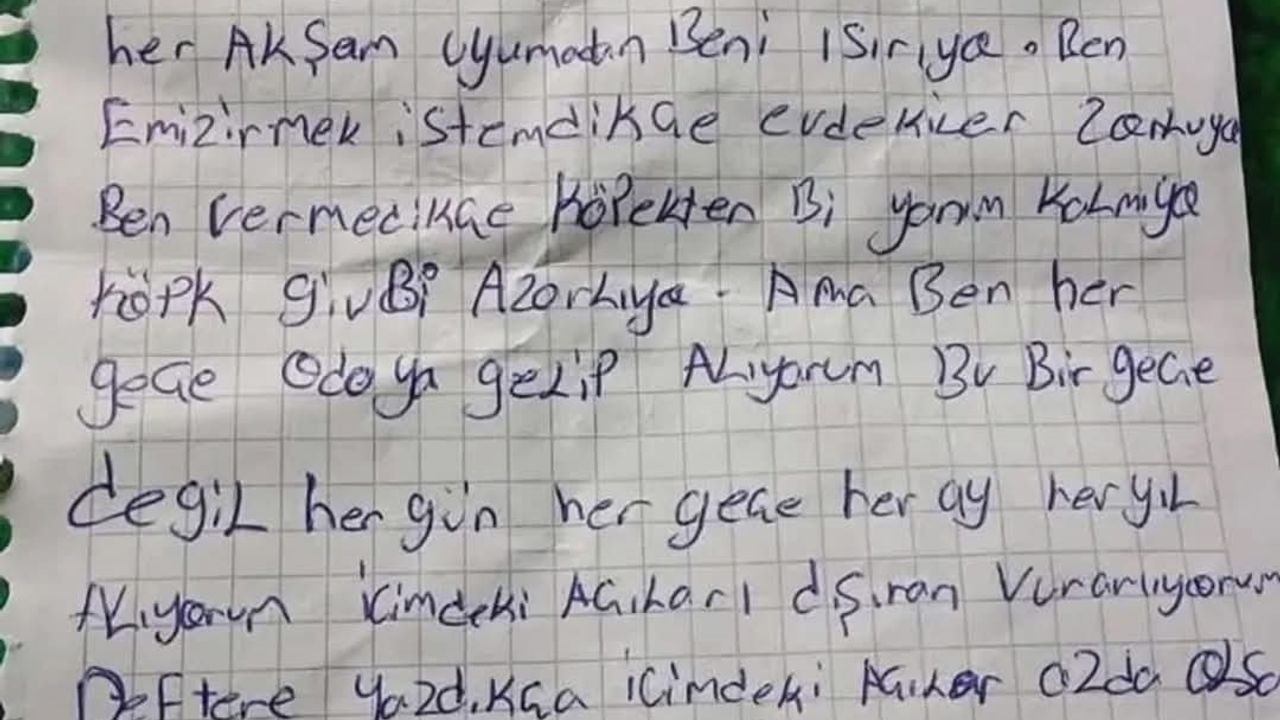 her AkŞam uyumadan Beni ısırıya. Ben
Emizirmek istemdikçe evdekiler zorluya
Ben vermedikçe köPekten Bi yanım kaLmıya
köPk givBi Azorlıya. Ama Ben her
geçe Odaya geLiP ALıyorum Bu Bir geçe
degiL her gün her geçe her ay her yıL
ALıyorum içimdeki Açıları dışıran Vurarlıyorum
DeFtere yazdıkça içimdeki Açılar azda Olsa